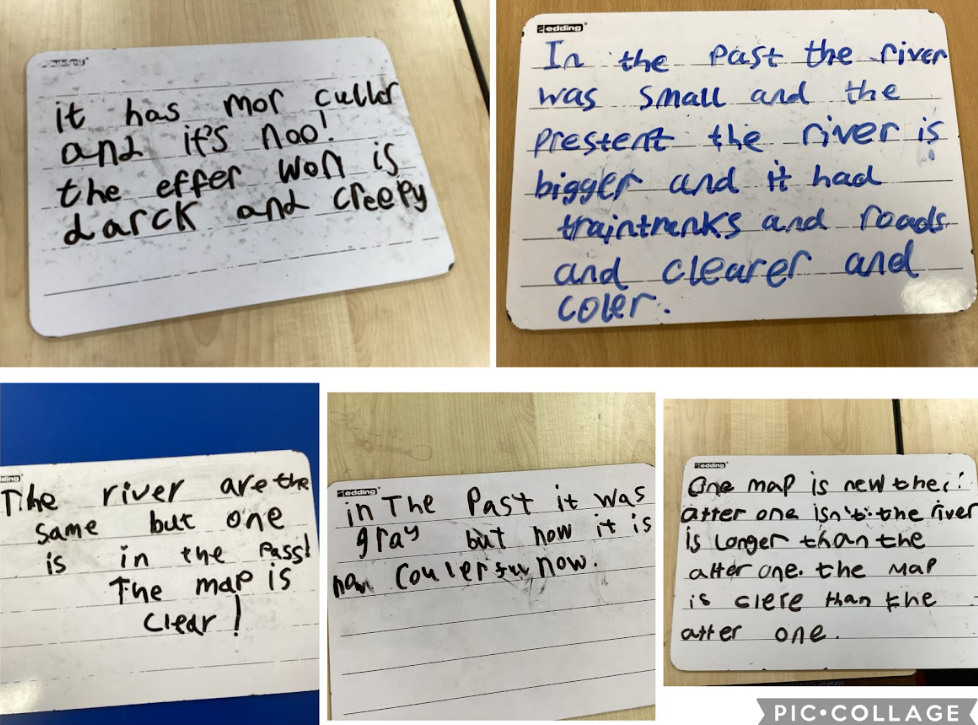 it has mor culler
and it's noo!
the effer won is
darck and creepy
edding
In the past the river
was small and the
prestent the river is
bigger and it had
traintranks and roads
and clearer and
coler.
The river are the
same but one
is in the past!
The map is
clear!
edding
in The Past it was
gray but now it is
now. 
edding
One map is new the
atter one isn't. the river
is longer than the
atter one. the map
is clere than the
atter one.
PIC•COLLAGE